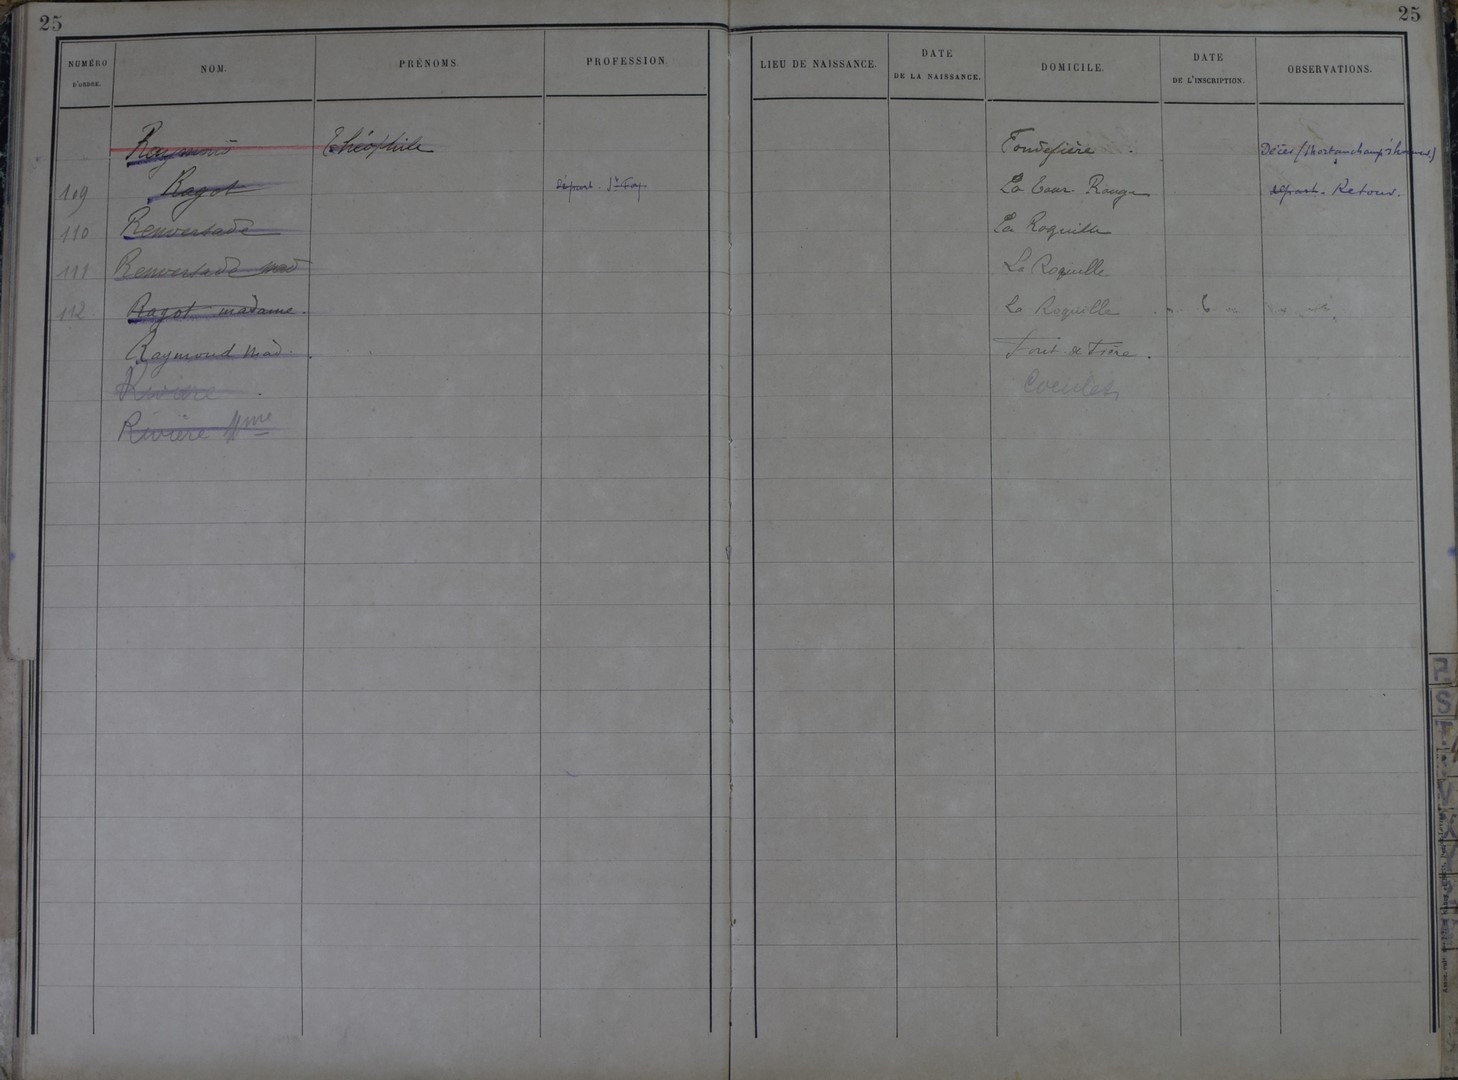 25 25
NUMÉRO D'ORDRE. NOM. PRÉNOMS. PROFESSION. LIEU DE NAISSANCE. DATE DE LA NAISSANCE. DOMICILE. DATE DE L'INSCRIPTION. OBSERVATIONS.
Reymond Théophile Fondefière Décès (Mort au champ d'honneur)
109 Ragot Départ Ste Foy La Tour Rouge départ. Retour.
110 Renversade La Roquille
111 Renversade mad La Roquille
112 Ragot madame. La Roquille
Raymond Mad.
Rivière
Rivière Mme
P
S
T
V
X
Y